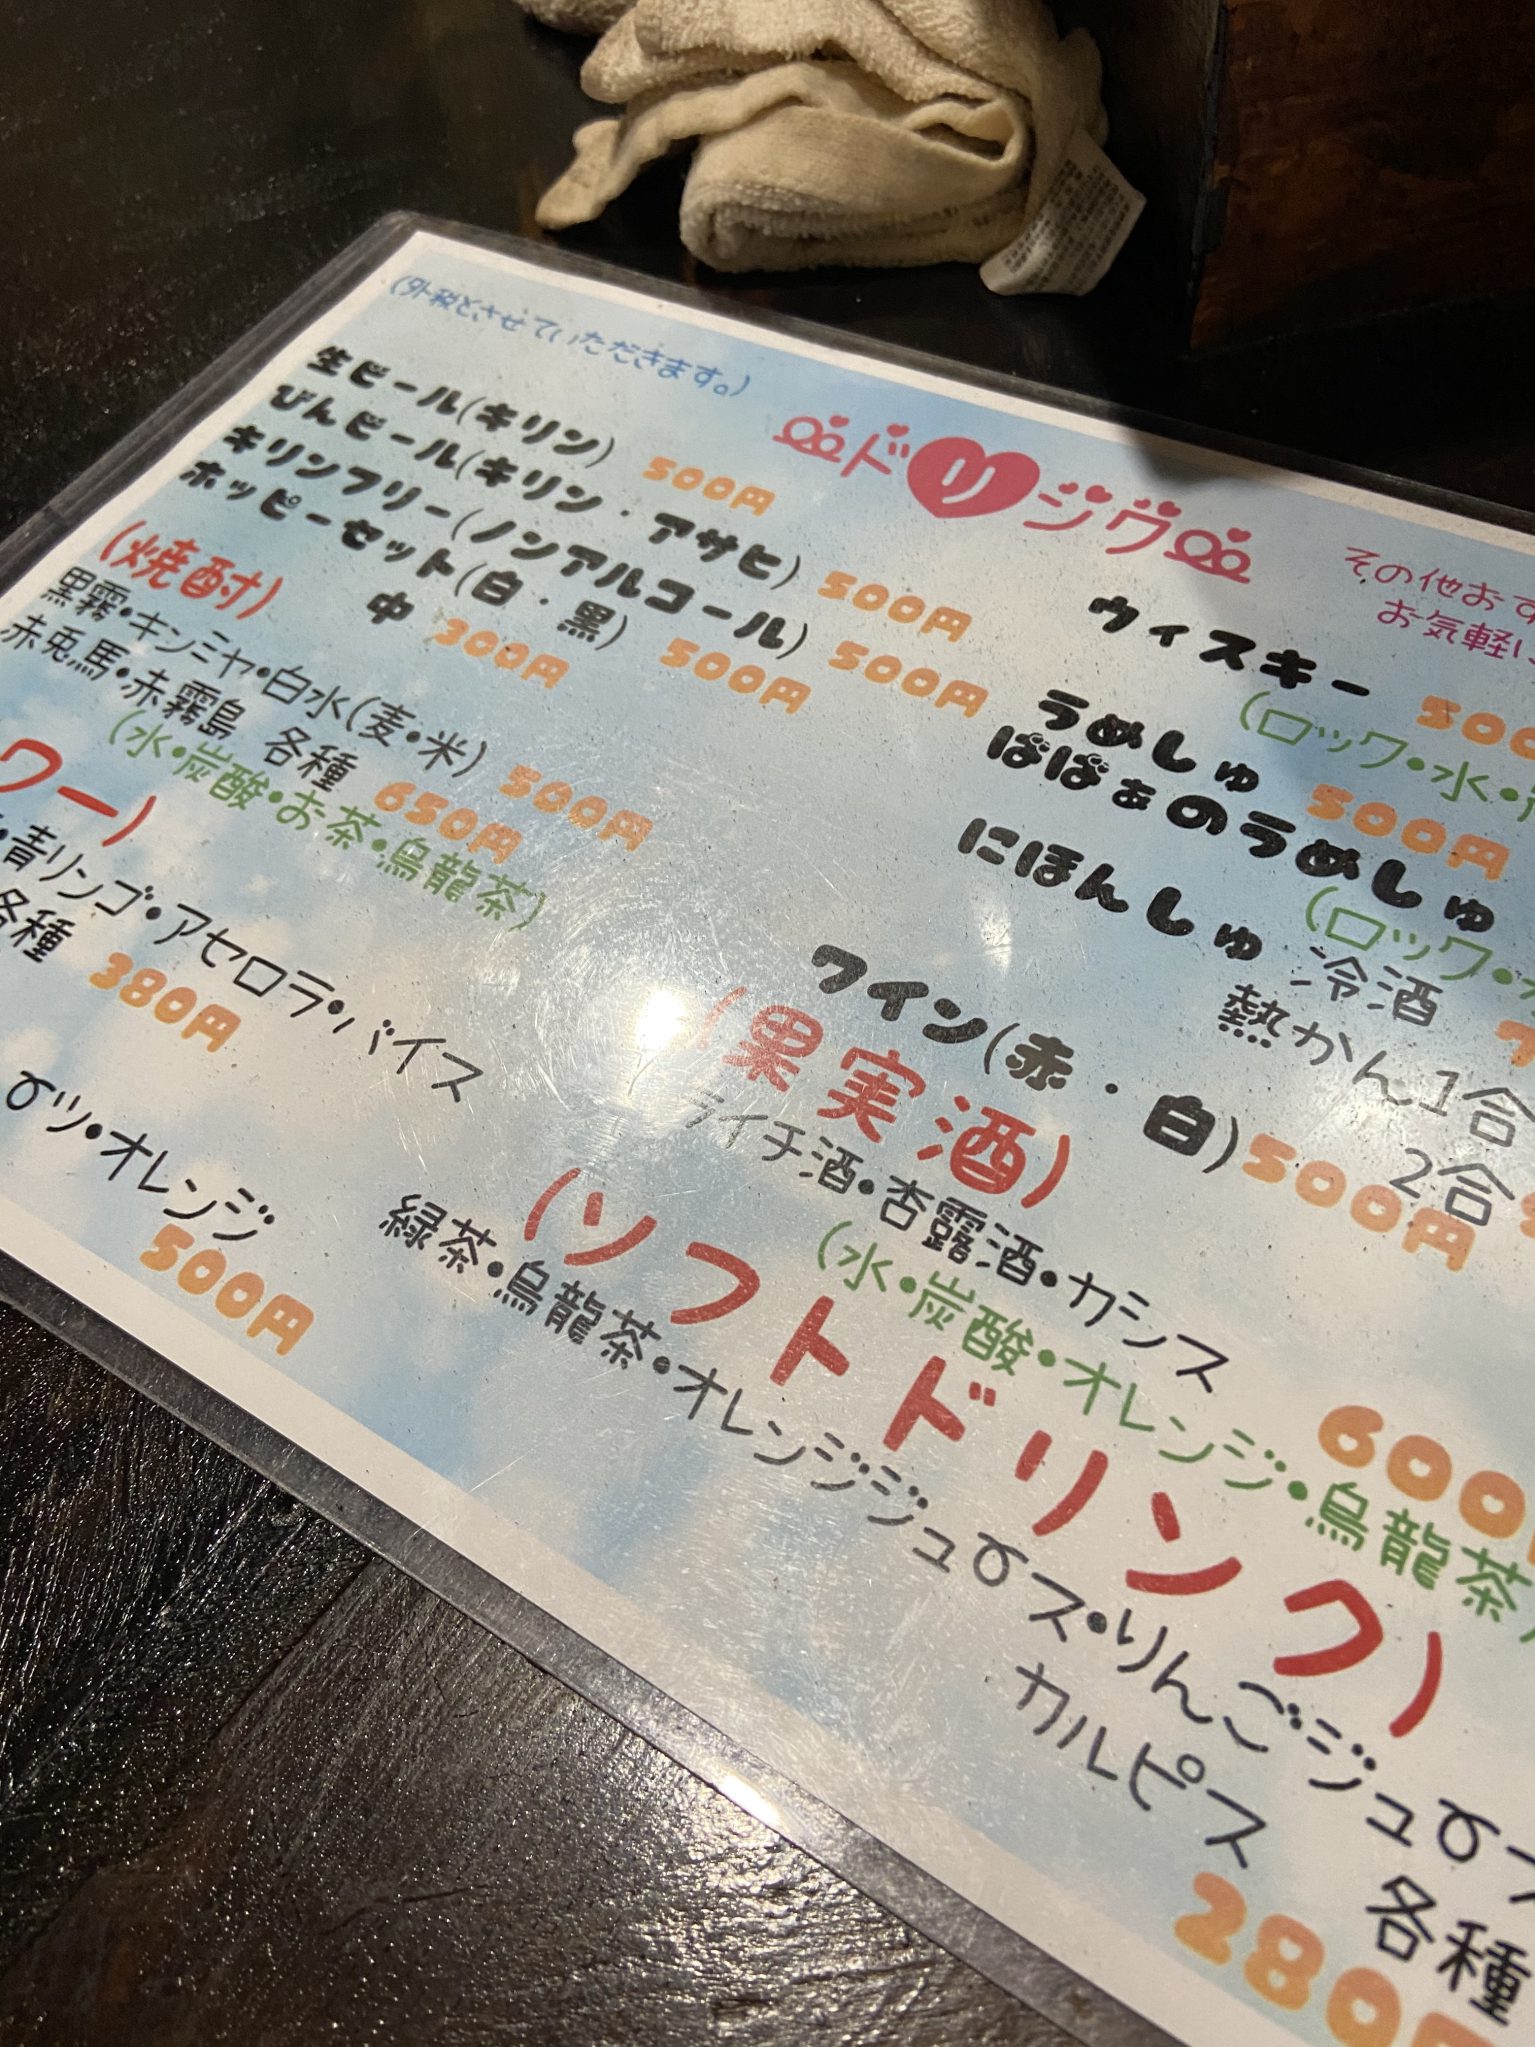 (外税とさせていただきます。)
ドリンク
生ビール(キリン) 500円
びんビール(キリン・アサヒ) 500円
キリンフリー(ノンアルコール) 500円
ホッピーセット(白・黒) 500円
中 300円
(焼酎)
黒霧・キンミヤ・白水(麦・米) 500円
赤兎馬・赤霧島 各種 650円
(水・炭酸・お茶・烏龍茶)
ワー)
・青リンゴ・アセロラ・バイス
各種 380円
ツ・オレンジ
500円
その他おす
お気軽に
ウィスキー 500
(ロック・水・
うめしゅ 500円
ばばぁのうめしゅ
(ロック・
にほんしゅ 冷酒
熱かん1合
2合
ワイン(赤・白)500円
(果実酒)
ライチ酒・杏露酒・カシス
600
(水・炭酸・オレンジ・烏龍茶)
(ソフトドリンク)
緑茶・烏龍茶・オレンジジュース・りんごジュー
カルピス 各種
280円